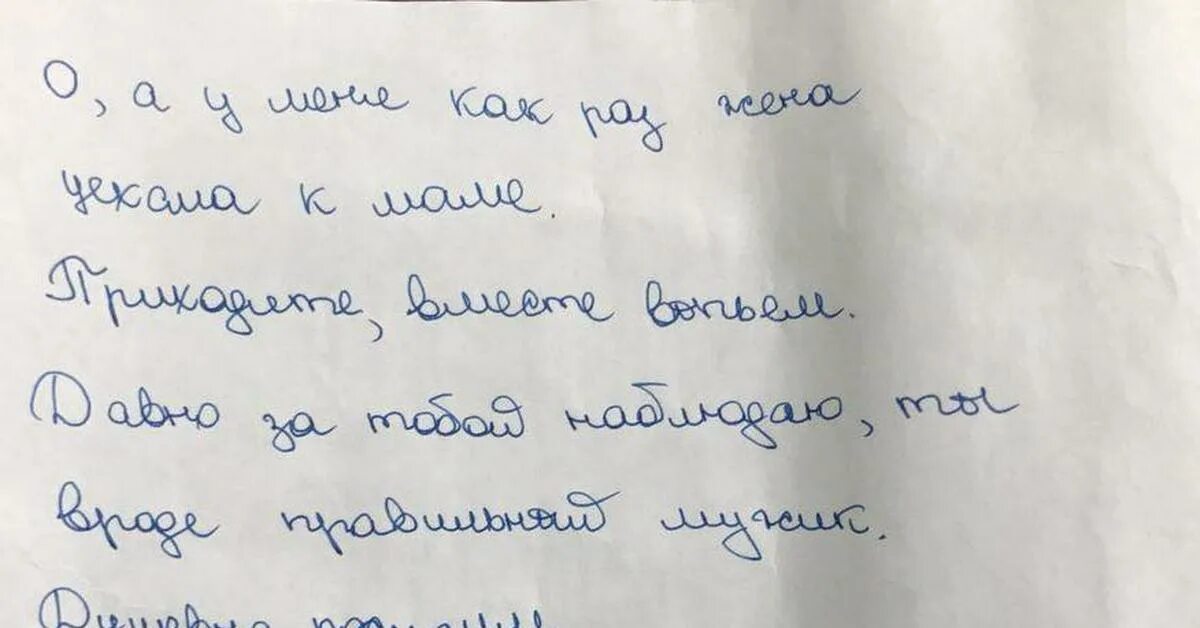 О, а у мене как раз жена
уехала к маме.
Приходите, вместе выпьем.
Давно за тобой наблюдаю, ты
вроде правильный мужик.